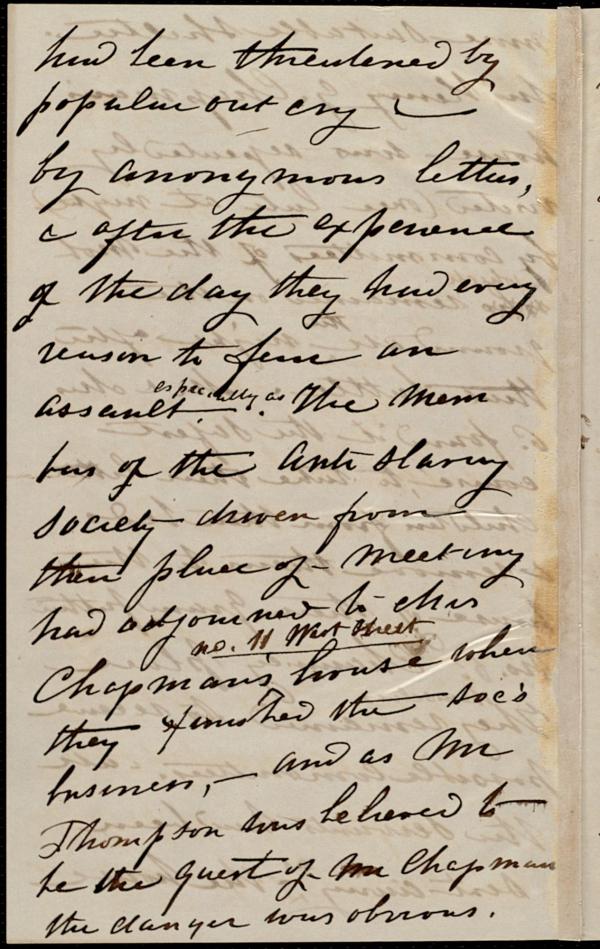 had been threatened by
popular out cry —
by anonymous letters,
& after the experience
of the day they had every
reason to fear an
especially as
assault. The Mem
bers of the Anti Slavery
Society driven from
their place of meeting
had adjourned to Mrs
no. 11 West Street
Chapman's house where
they finished the Soc's
business, — and as Mr
Thompson was believed to
be the guest of Mr Chapman
the danger was obvious.